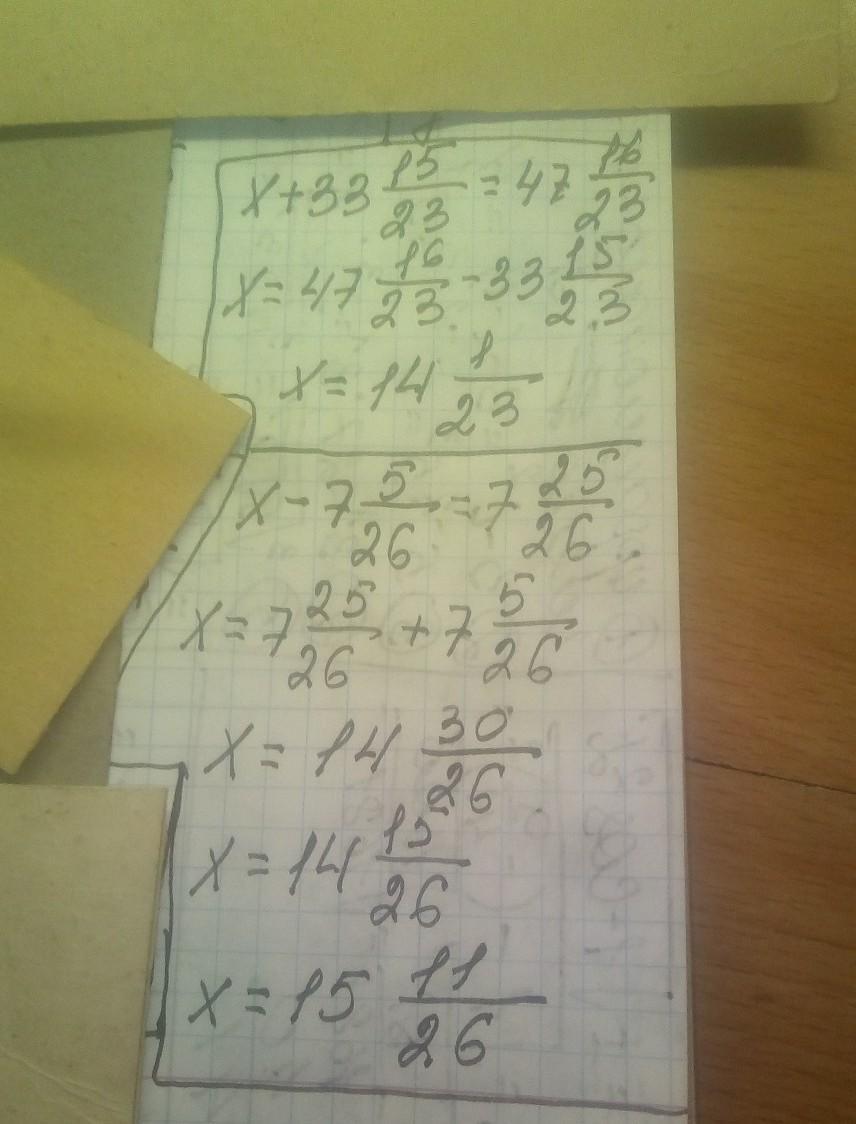 x+33 15/23 = 47 16/23
x = 47 16/23 - 33 15/23
x = 14 1/23
x - 7 5/26 = 7 25/26
x = 7 25/26 + 7 5/26
x = 14 30/26
x = 14 15/26
x = 15 11/26